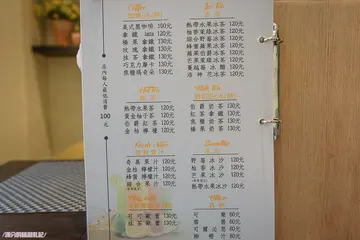 店內每人最低消費100元
Coffee
美式黑咖啡 100元
拿鐵 latte 120元
榛果拿鐵 130元
玫瑰拿鐵 130元
抹茶拿鐵 130元
巧克力摩卡 130元
焦糖瑪奇朵 130元
Ice Tea
熱帶水果冰茶 120元
柚香茉綠冰茶 120元
甜合野莓冰茶 120元
蜂蜜蘋果冰茶 120元
百香蘋果冰茶 120元
芒果茉綠冰茶 120元
蔓越莓冰醋 120元
洛神花冰茶 120元
Hot Tea
熱帶水果茶 120元
黃金柚子茶 120元
伯爵紅茶 120元
金桔檸檬 120元
Milk Tea
伯爵奶茶 130元
紅茶拿鐵 130元
焦糖奶茶 130元
抹茶奶茶 130元
Fresh Juice
奇異果汁 120元
金桔檸檬 120元
蜂蜜檸檬汁 120元
綜合果汁 120元
Smoothy
冰沙
野莓冰沙 120元
柚香冰沙 120元
芒果冰沙 120元
熱帶水果冰沙 120元
可可歐蕾 130元
抹茶歐蕾 130元
Other
可樂 60元
雪碧 60元
可爾必思 60元
柳橙汁 60元